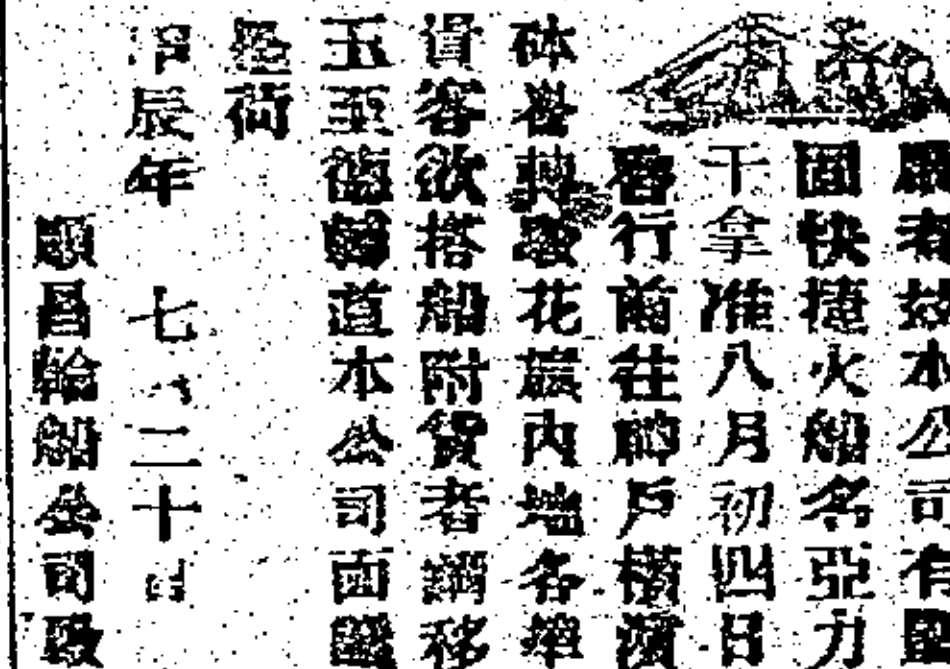 啟者茲本公司有
固快捷火船名亞力
干拿准八月初四日
啓行前往神戶橫濱
砵崙轉駁花旗內地各埠
貴客欲搭船附貨者請移
玉至德輔道本公司面
是荷
甲辰年 七月二十日
順昌輪船公司啟